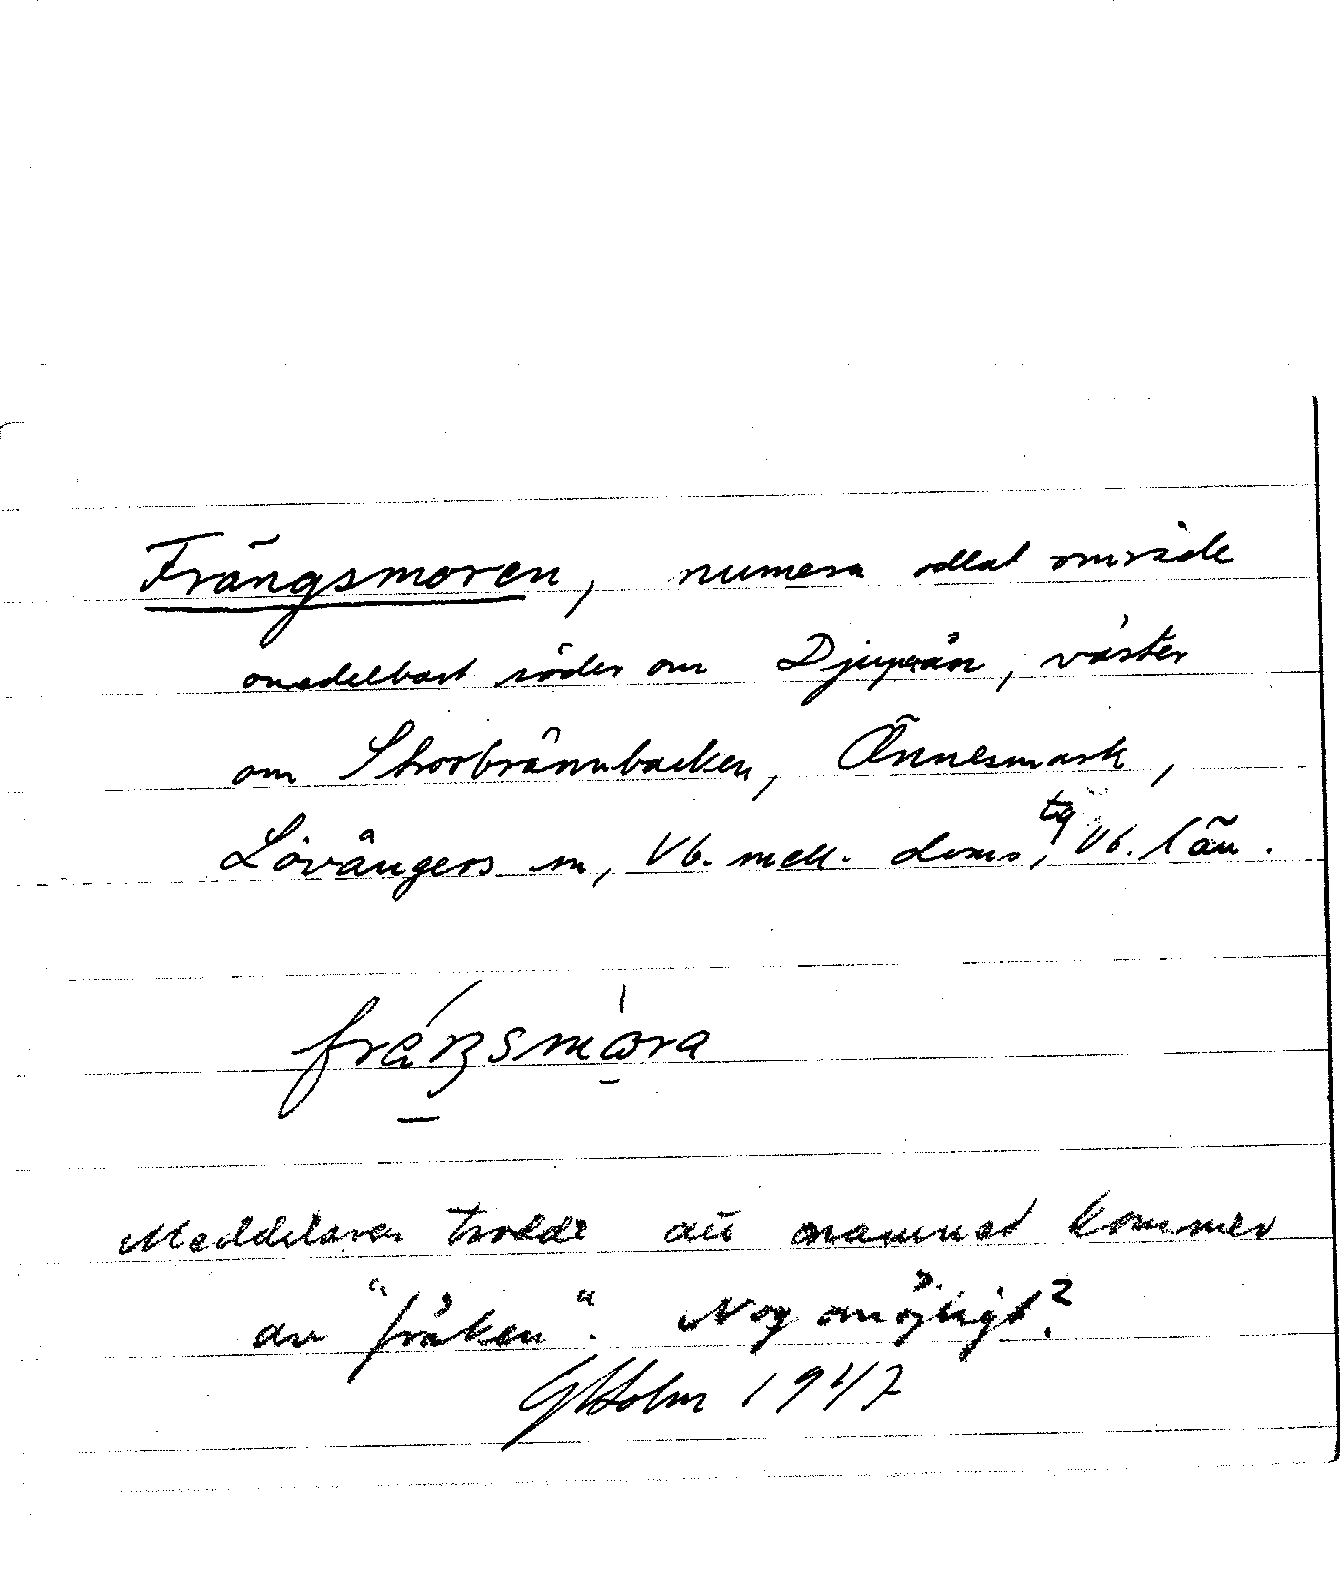 Frängsmoren, numera odlat område
omedelbart söder om Djupån, väster
om Storbrännbacken, Önnesmark,
Lövångers sn, Vb. mell. doms.
tg Vb. län.
fräŋsmora
Meddelaren trodde att namnet kommer
av "fräken". Nog omöjligt?
GHolm 1947